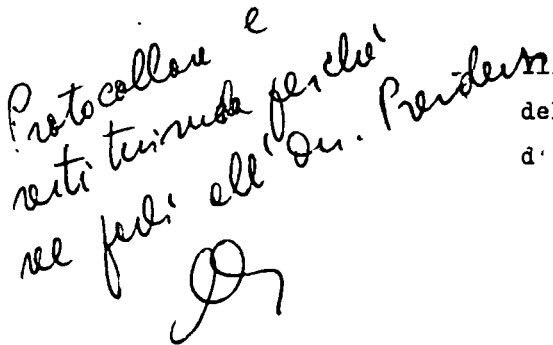 Protocollare e
restituirmela perché
ne parli all'On. Presidente
del
d'